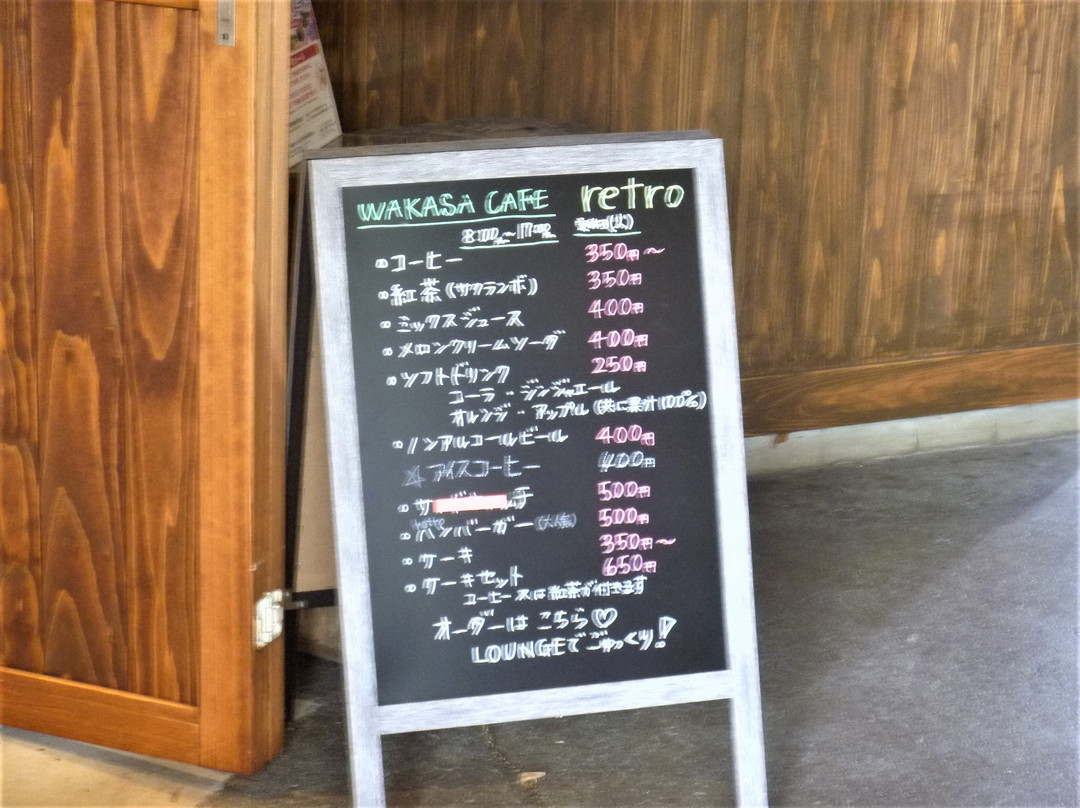 WAKASA CAFE retro
8:00~17:00 定休日(火)
コーヒー 350円~
紅茶 (サクランボ) 350円
ミックスジュース 400円
メロンクリームソーダ 400円
ソフトドリンク 250円
コーラ ・ ジンジャエール
オレンジ ・ アップル (共に果汁100%)
ノンアルコールビール 400円
アイスコーヒー 400円
500円
ハンバーガー (大人気) 500円
ケーキ 350円~
ケーキセット 650円
コーヒー又は紅茶が付きます
オーダーは こちら♡
LOUNGEで ごゆっくり!